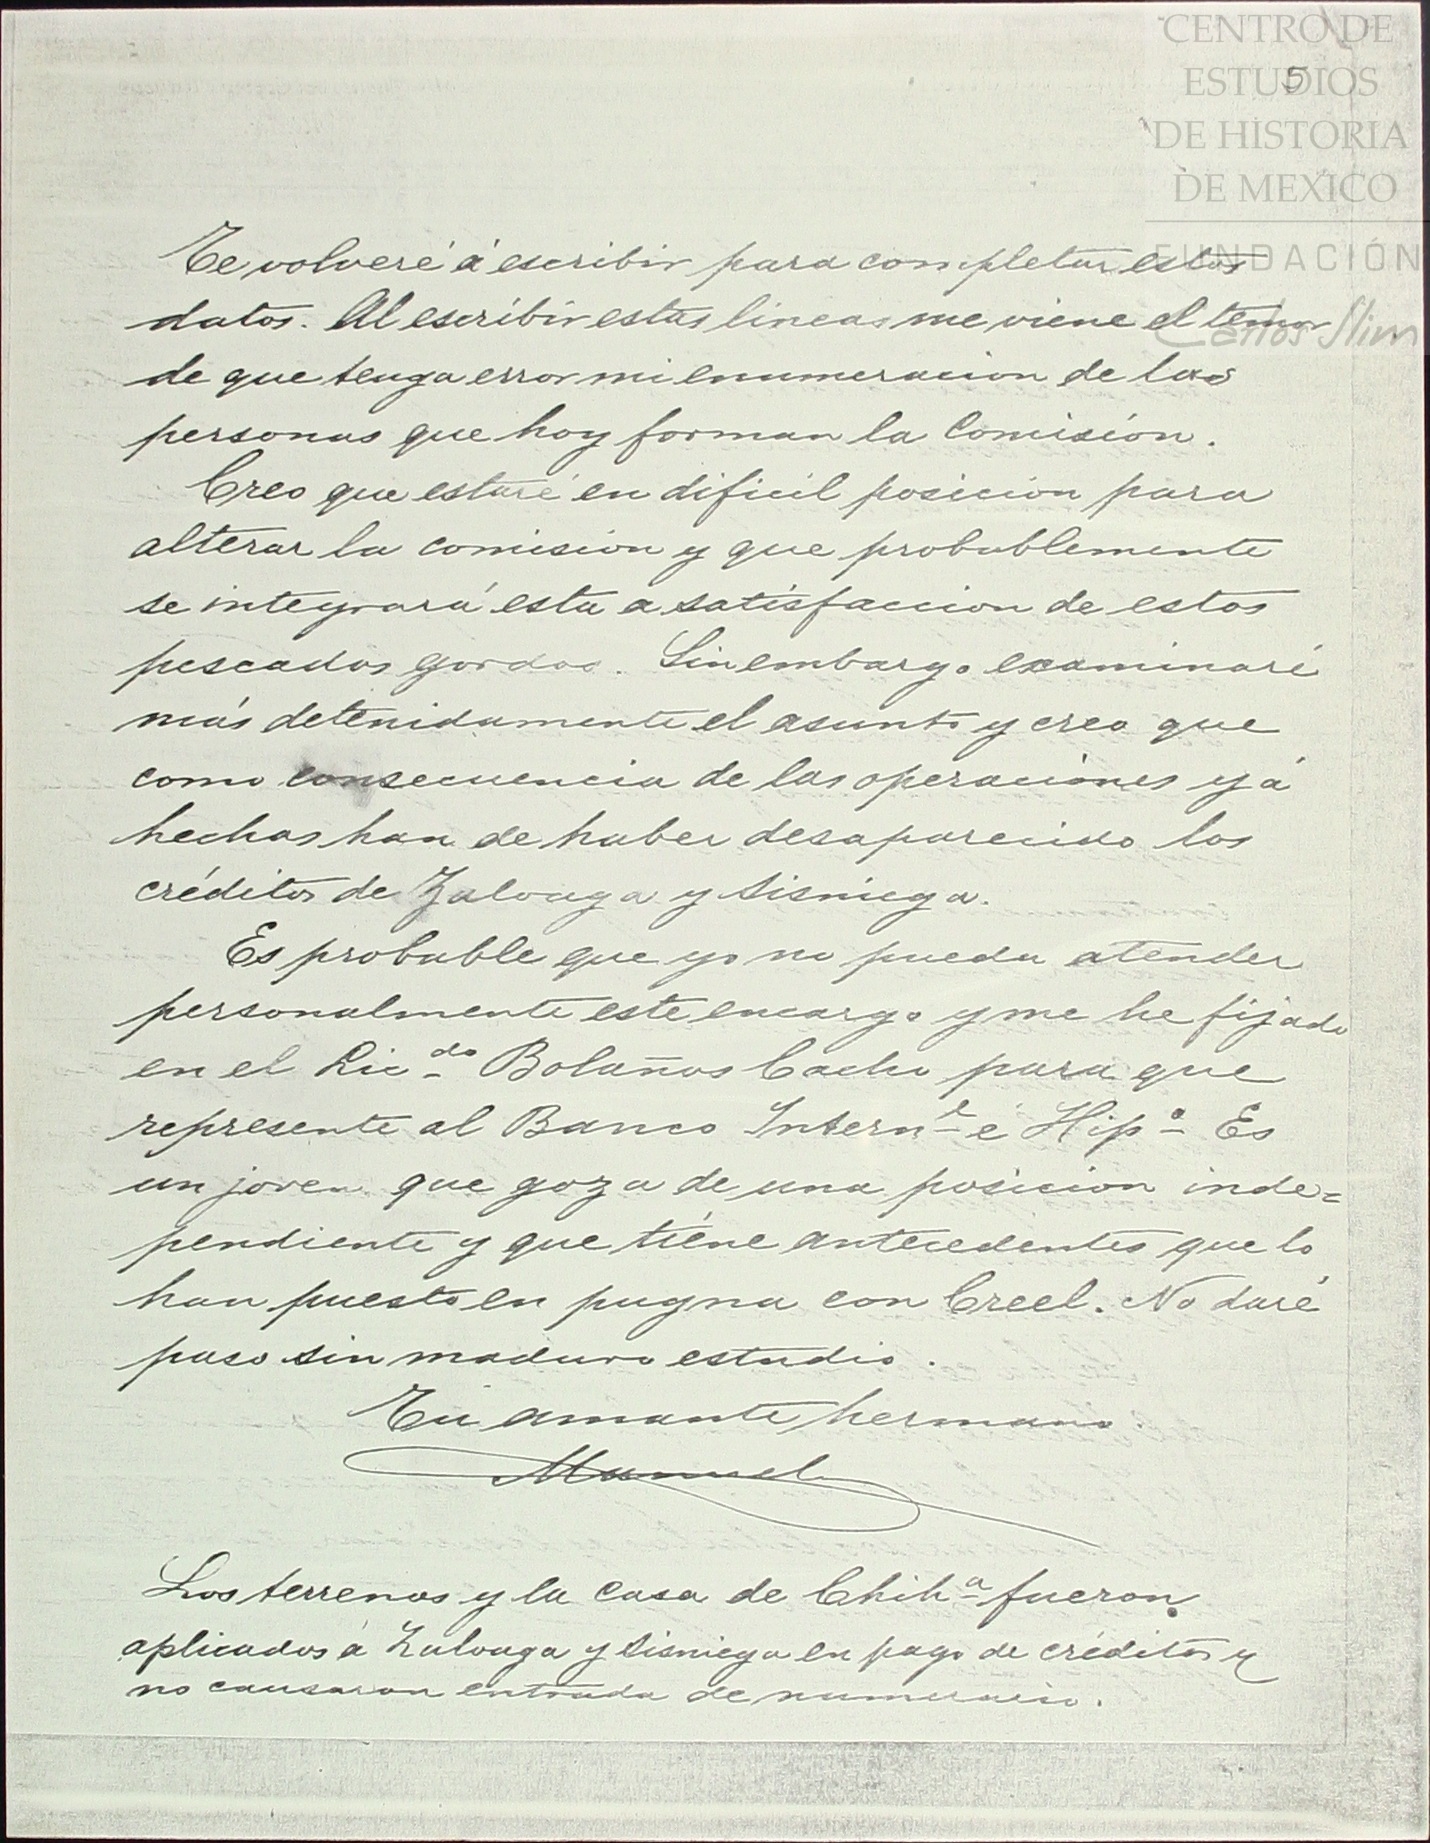 CENTRO DE
ESTUDIOS
DE HISTORIA
DE MEXICO
FUNDACIÓN
Carlos Slim
5
Te volveré á escribir para completar estos
datos. Al escribir estas lineas me viene el temor
de que tenga error mi enumeracion de las
personas que hoy forman la Comisión.
Creo que estaré en dificil posicion para
alterar la comision y que probablemente
se integrará esta a satisfaccion de estos
pescados gordos. Sin embargo examinaré
más detenidamente el asunto y creo que
como consecuencia de las operaciones yá
hechas han de haber desaparecido los
créditos de Zuloaga y Sisniega.
Es probable que yo no pueda atender
personalmente este encargo y me he fijado
en el Licdo Bolaños Cacho para que
represente al Banco Internl é Hipo Es
un joven que goza de una posicion inde=
pendiente y que tiene antecedentes que lo
han puesto en pugna con Creel. No daré
paso sin maduro estudio.
Tu amante hermano
Manuel
Los terrenos y la casa de Chiha fueron
aplicados á Zuloaga y Sisniega en pago de créditos y
no causaron entrada de numerario.